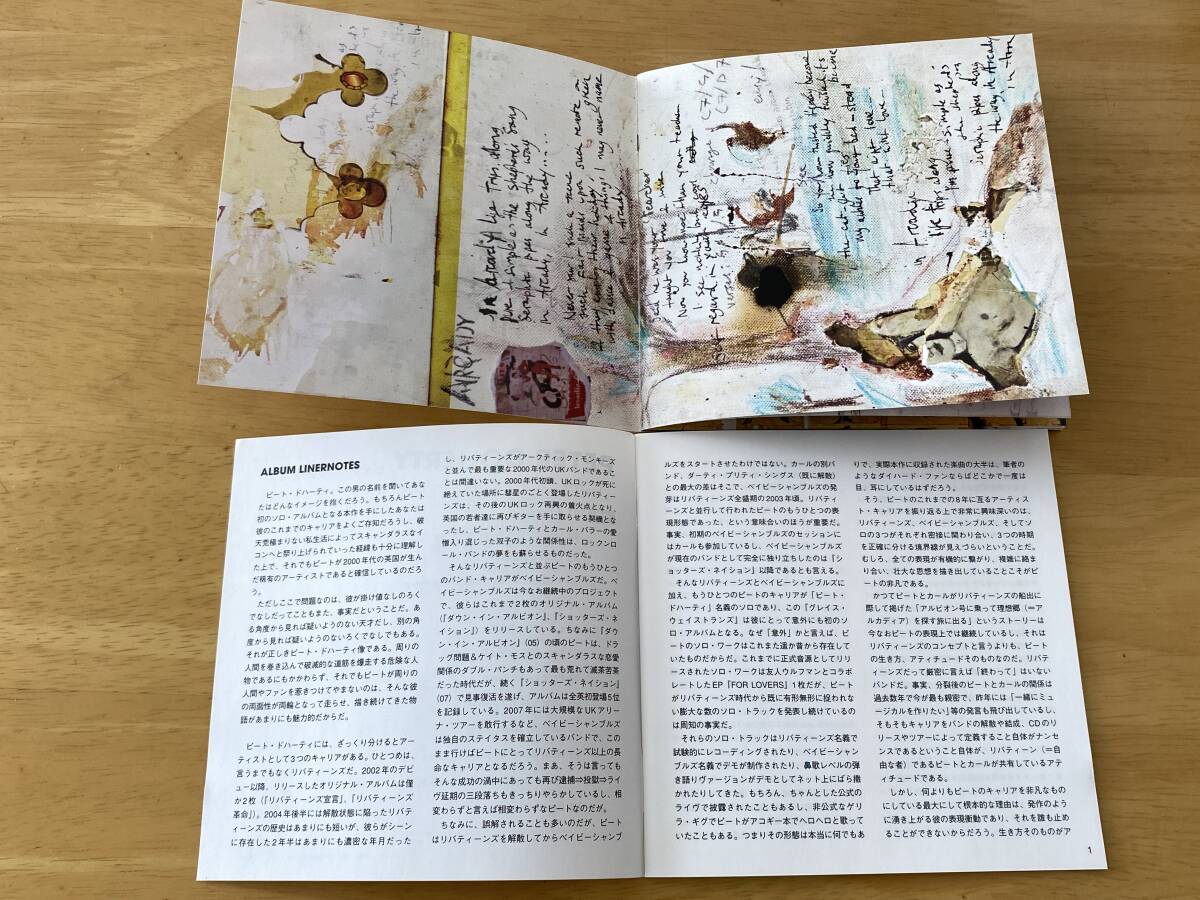 ARCADY
In Arcady life trips along
Pure & simple as the shepherd's song
Seraphic pipes along the way
In Arcady, in Arcady.....
in Arcady
See
so you how twisted they become
that cat gut love
that cat gut love
in Arcady
life trips along
I'm pure & simple as
the shepherds
seraphic pipes along
the way, in Arcady
ALBUM LINERNOTES
ピート・ドハーティ。この男の名前を聞いてあな
たはどんなイメージを抱くだろう。もちろんピート
初のソロ・アルバムとなる本作を手にしたあなたは
彼のこれまでのキャリアをよくご存知だろうし、破
天荒極まりない私生活によってスキャンダラスなイ
コンへと祭り上げられていった経緯も十分に理解し
た上で、それでもピートが2000年代の英国が生ん
だ稀有のアーティストであると確信しているのだろ
う。
ただしここで問題なのは、彼が掛け値なしのろく
でなしだってこともまた、事実だということだ。あ
る角度から見れば疑いようのない天才だし、別の角
度から見れば疑いようのないろくでなしでもある。
それが正しきピート・ドハーティ像である。周りの
人間を巻き込んで破滅的な道筋を爆走する危険な人
物であるにもかかわらず、それでもピートが周りの
人間やファンを惹きつけてやまないのは、そんな彼
の両面性が両輪となって走らせ、描き続けてきた物
語があまりにも魅力的だからだ。
ピート・ドハーティには、ざっくり分けるとアー
ティストとして3つのキャリアがある。ひとつめは、
言うまでもなくリバティーンズだ。2002年のデビ
ュー以降、リリースしたオリジナル・アルバムは僅
か2枚(『リバティーンズ宣言』、『リバティーンズ
革命』)。2004年後半には解散状態に陥ったリバテ
ィーンズの歴史はあまりにも短いが、彼らがシーン
に存在した2年半はあまりにも濃密な年月だった
し、リバティーンズがアークティック・モンキーズ
と並んで最も重要な2000年代のUKバンドであるこ
とは間違いない。2000年代初頭、UKロックが死に
絶えていた場所に彗星のごとく登場したリバティー
ンズは、その後のUKロック再興の着火点となり、
英国の若者達に再びギターを手に取らせる契機とな
ったし、ピート・ドハーティとカール・バラーの愛
憎入り混じった双子のような関係性は、ロックンロ
ール・バンドの夢をも蘇らせるものだった。
そんなリバティーンズと並ぶピートのもうひとつ
のバンド・キャリアがベイビーシャンブルズだ。ベ
イビーシャンブルズは今なお継続中のプロジェクト
で、彼らはこれまで2枚のオリジナル・アルバム
(『ダウン・イン・アルビオン』、『ショッターズ・ネ
イション』)をリリースしている。ちなみに『ダウ
ン・イン・アルビオン』(05)の頃のピートは、ドラ
ッグ問題&ケイト・モスとのスキャンダラスな恋愛
関係のダブル・パンチもあって最も荒れて滅茶苦茶
だった時代だが、続く『ショッターズ・ネイション』
(07)で見事復活を遂げ、アルバムは全英初登場5位
を記録している。2007年には大規模なUKアリー
ナ・ツアーを敢行するなど、ベイビーシャンブルズ
は独自のステイタスを確立しているバンドで、この
まま行けばピートにとってリバティーンズ以上の長
命なキャリアとなるだろう。まあ、そうは言っても
そんな成功の渦中にあっても再び逮捕⇒投獄⇒ライ
ヴ延期の三段落ちもきっちりやらかしているし、相
変わらずと言えば相変わらずなピートなのだが。
ちなみに、誤解されることも多いのだが、ピート
はリバティーンズを解散してからベイビーシャンブ
ルズをスタートさせたわけではない。カールの別バ
ンド、ダーティ・プリティ・シングス(既に解散)
との最大の差はそこで、ベイビーシャンブルズの発
芽はリバティーンズ全盛期の2003年頃。リバティ
ーンズと並行して行われたピートのもうひとつの表
現形態であった、という意味合いのほうが重要だ。
事実、初期のベイビーシャンブルズのセッションに
はカールも参加しているし、ベイビーシャンブルズ
が現在のバンドとして完全に独り立ちしたのは『シ
ョッターズ・ネイション』以降であるとも言える。
そんなリバティーンズとベイビーシャンブルズに
加え、もうひとつのピートのキャリアが「ピート・
ドハーティ」名義のソロであり、この『グレイス・
ウェイストランズ』は彼にとって意外にも初のソ
ロ・アルバムとなる。なぜ「意外」かと言えば、ピ
ートのソロ・ワークはこれまた遥か昔から存在して
いたものだからだ。これまでに正式音源としてリリ
ースされたソロ・ワークは友人ウルフマンとコラボ
レートしたEP『FOR LOVERS』1枚だが、ピート
がリバティーンズ時代から既に有形無形に捉われな
い膨大な数のソロ・トラックを発表し続けているの
は周知の事実だ。
それらのソロ・トラックはリバティーンズ名義で
試験的にレコーディングされたり、ベイビーシャン
ブルズ名義でデモが制作されたり、鼻歌レベルの弾
き語りヴァージョンがデモとしてネット上にばら撒
かれたりしてきた。もちろん、ちゃんとした公式の
ライヴで披露されたこともあるし、非公式なゲリ
ラ・ギグでピートがアコギ一本でヘロヘロと歌って
いたこともある。つまりその形態は本当に何でもあ
りで、実際本作に収録された楽曲の大半は、筆者の
ようなダイハード・ファンならばどこかで一度は
目、耳にしているはずだろう。
そう、ピートのこれまでの8年に亙るアーティス
ト・キャリアを振り返る上で非常に興味深いのは、
リバティーンズ、ベイビーシャンブルズ、そしてソ
ロの3つがそれぞれ密接に関わり合い、3つの時期
を正確に分ける境界線が見えづらいということだ。
むしろ、全ての表現が有機的に繋がり、複雑に絡ま
り合い、壮大な思想を描き出していることこそがピ
ートの非凡である。
かつてピートとカールがリバティーンズの船出に
際して掲げた「アルビオン号に乗って理想郷(=ア
ルカディア)を探す旅に出る」というストーリーは
今なおピートの表現上では継続しているし、それは
リバティーンズのコンセプトと言うよりも、ピート
の生き方、アティチュードそのものなのだ。リバテ
ィーンズだって厳密に言えば「終わって」はいない
バンドだ。事実、分裂後のピートとカールの関係は
過去数年で今が最も親密で、昨年には「一緒にミュ
ージカルを作りたい」等の発言も飛び出しているし、
そもそもキャリアをバンドの解散や結成、CDのリ
リースやツアーによって定義すること自体がナンセ
ンスであるということ自体が、リバティーン(=自
由な者)であるピートとカールが共有しているアテ
ィチュードである。
しかし、何よりもピートのキャリアを非凡なもの
にしている最大にして根本的な理由は、発作のよう
に湧き上がる彼の表現衝動であり、それを誰も止め
ることができないからだろう。生き方そのものがア
1